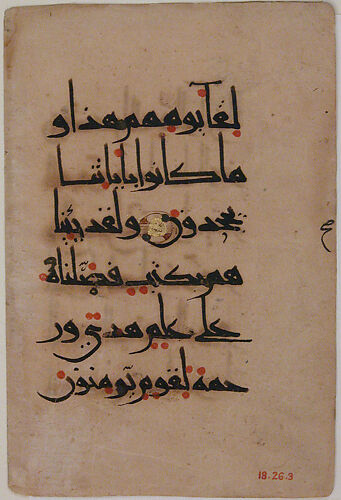 لقآ يومهم هذا و
ما كانوا بايا تنا
يجحدون ولقد جئنا
هم بكتب فصّلناه
على علم هدى ور
حمة لقوم يّومنون
ح
18.26.3